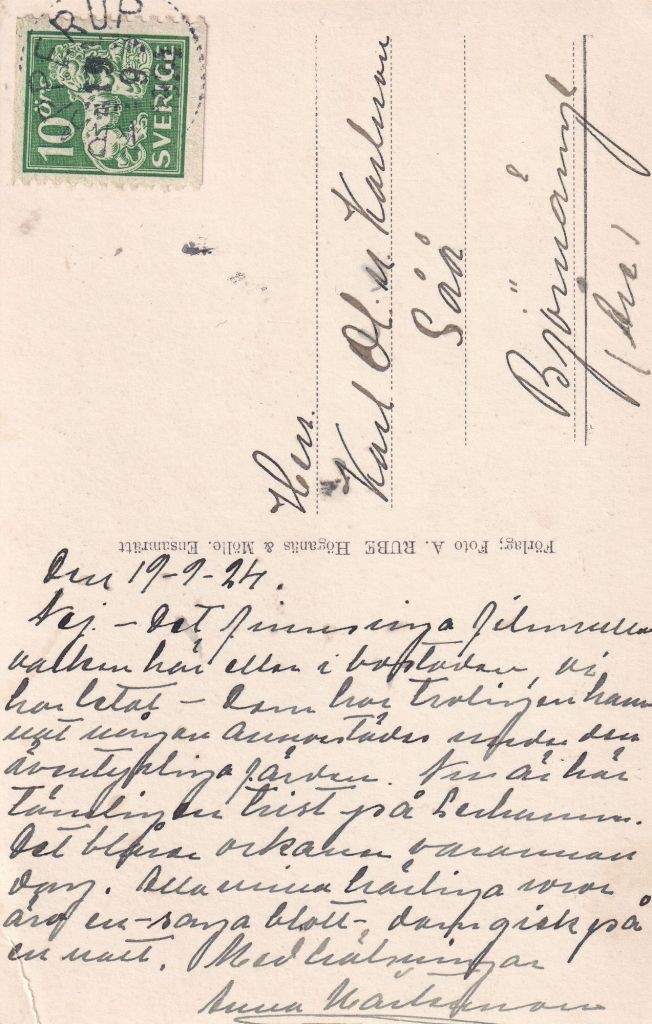 10 öre
SVERIGE
Herr.
Karl Ol. M. Karlsson
Sää
Björnänge
Förlag; Foto A. RUBE Höganäs & Mölle. Ensamrätt
Den 19-9-24.
Nej. - Det finns inga filmrullar
varken här eller i bostaden, vi
har letat - Dom har troligen ham
nat någon annorstädes under den
äventyrliga färden. Nu är här
tämligen trist på Lerhamn.
Det blåser orkaner varannan
dag. Alla mina härliga rosor
äro en saga blott, dom gick på
en natt. Med hälsningar
Anna Mårtensson